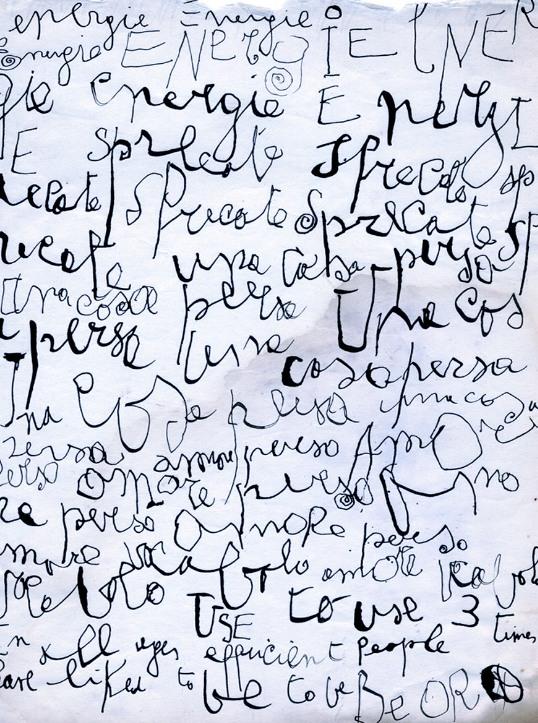 energie Energie
Energie ENERGIE ENER
gie energie E nergI
E sprecate sprecate sp
recate sprecate sprecate sp
recate una cosa persa
Una cosa persa Una cos
persa Una
cosa persa
Una Cosa persa una cosa
persa amore perso Amore
perso amore perso
re perso amore perso
more amore
USE to use 3 times
in all eyes efficient people
are liked to be to be Be OR